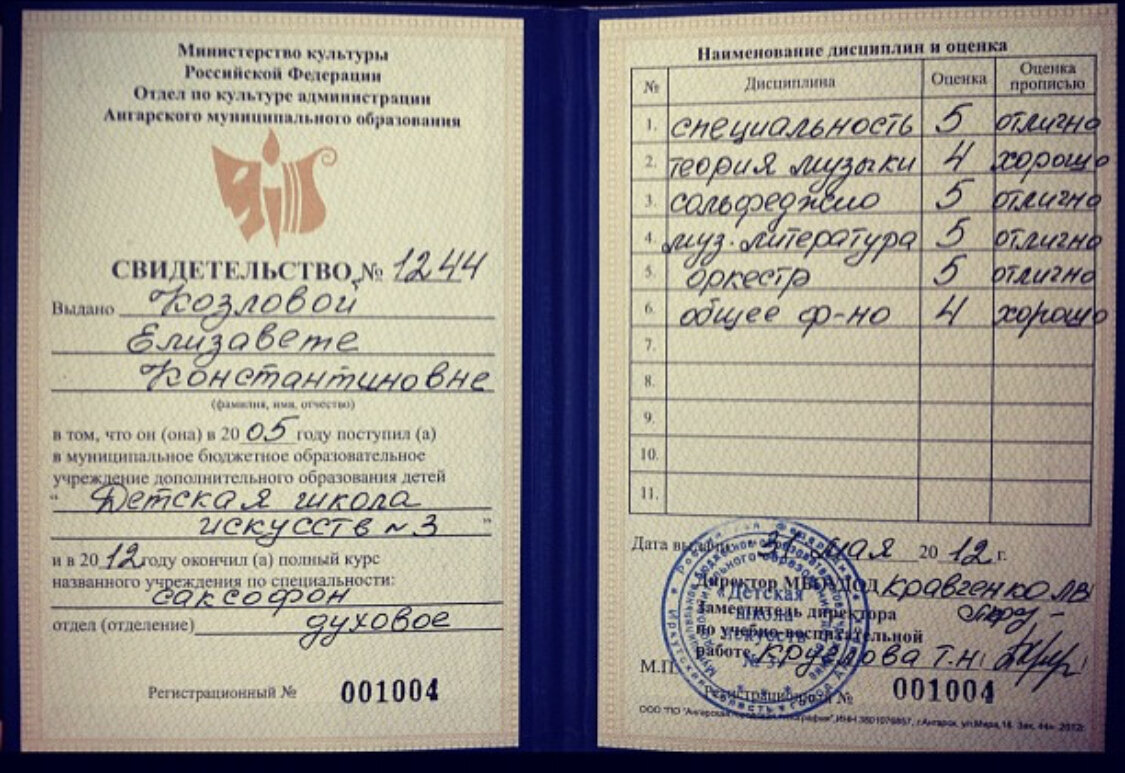 Министерство культуры
Российской Федерации
Отдел по культуре администрации
Ангарского муниципального образования
СВИДЕТЕЛЬСТВО № 1244
Выдано Козловой
Елизавете
Константиновне
(фамилия, имя, отчество)
в том, что он (она) в 2005 году поступил (а)
в муниципальное бюджетное образовательное
учреждение дополнительного образования детей
" Детская школа
искусств №3 "
и в 2012 году окончил (а) полный курс
названного учреждения по специальности:
саксофон
отдел (отделение) духовое
Регистрационный № 001004
Наименование дисциплин и оценка
№ Дисциплина Оценка Оценка прописью
1. специальность 5 отлично
2. теория музыки 4 хорошо
3. сольфеджио 5 отлично
4. муз. литература 5 отлично
5. оркестр 5 отлично
6. общее ф-но 4 хорошо
7.
8.
9.
10.
11.
Дата выдачи 31 мая 2012 г.
Директор МБОУДОД Кравченко ЛВ
Заместитель директора
по учебно-воспитательной
работе Круглова Т.Н.
М.П.
Регистрационный № 001004
"Детская
школа
искусств
№ 3"
ООО "ПО "Ангарская городская типография", ИНН 3801076857, г.Ангарск, ул.Мира,18. Зак. 44н -2012г.